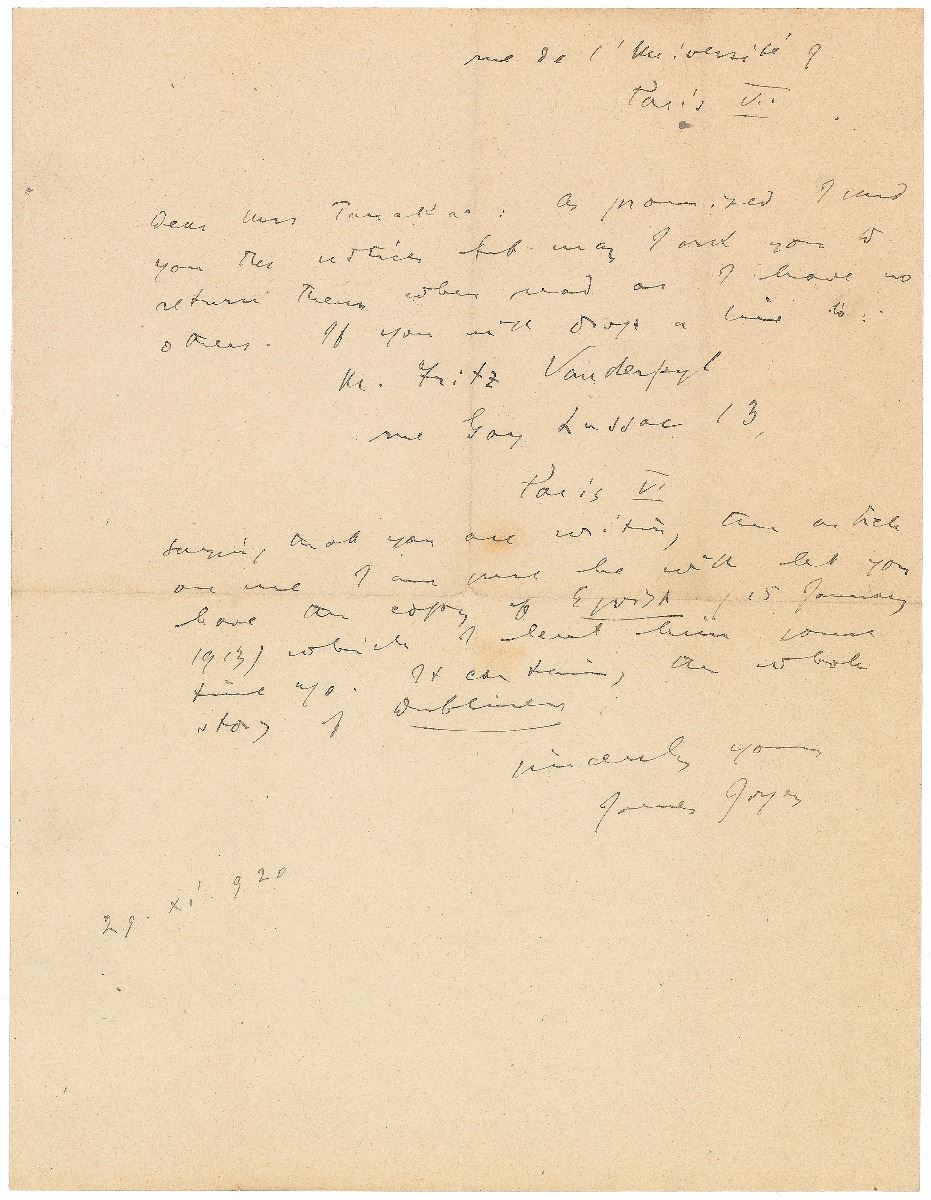 rue de l'Université 9
Paris VII
Dear Mrs Tanakaa: As promised I send
you the notices but may I ask you to
return them when read as I have no
others. If you will drop a line to:
M. Fritz Vanderpyl
rue Gay Lussac 13,
Paris VI
saying that you are writing the article
on me I am sure he will let you
have the copy of Egoist (15 January
1913) which I lent him some
time ago. It contains the whole
story of Dubliners.
sincerely yours
James Joyce
29. xi. 920